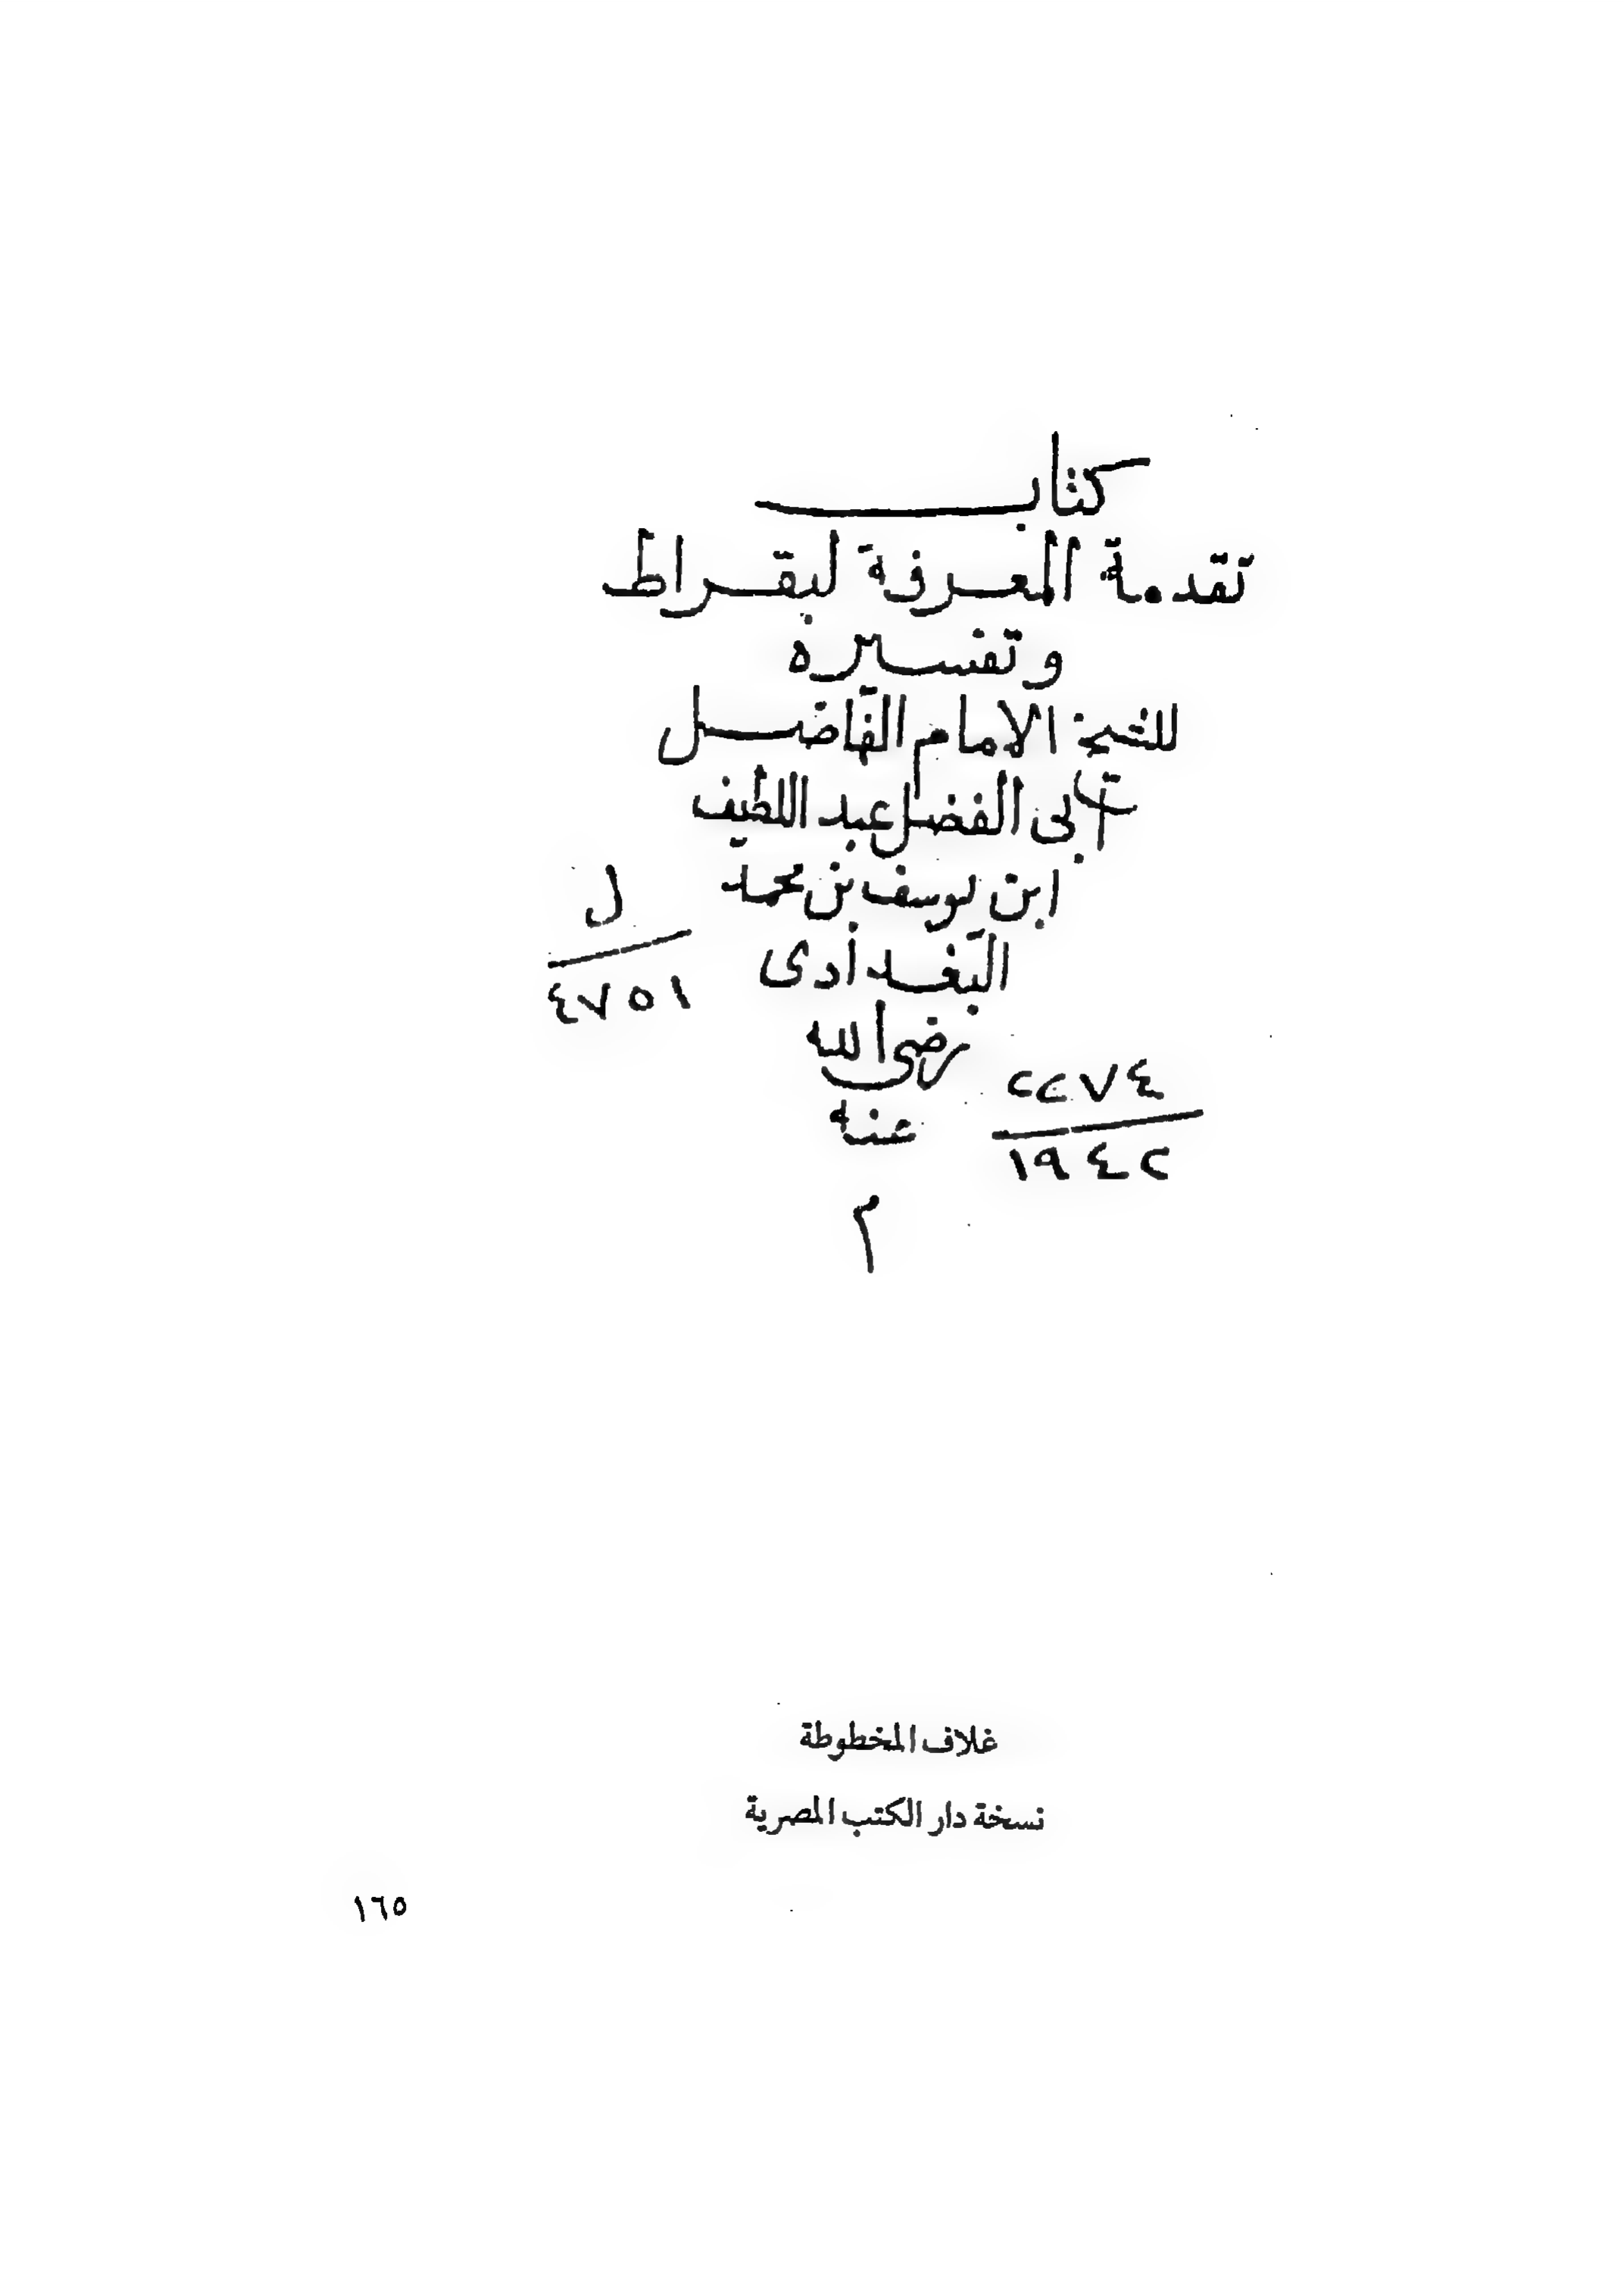 كتاب
تقدمة المعرفة لبقراط
وتفسيره
للشيخ الامام الفاضل
ابى الفضل عبد اللطيف
ابن يوسف بن محمد
البغدادى
ل
٤٧٥١
رضى الله
عنه
٢٢٧٤
١٩٤٢
٢
غلاف المخطوطة
نسخة دار الكتب المصرية
١٦٥